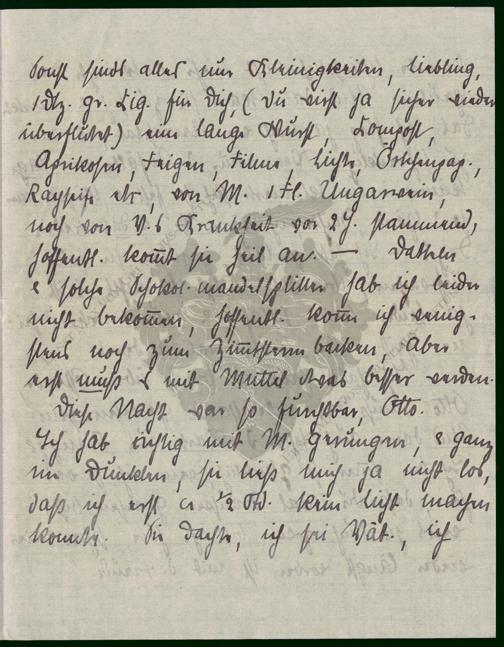 Sonst sinds alles nur Kleinigkeiten, Liebling,
1 Dtz. gr. Zig. für Dich, (Du wirst ja sicher wieder
überflutet) eine lange Wurst, Kompost,
Aprikosen, Feigen, Filme, Lichte,
von M. 1 Fl. Ungarwein,
noch von V.s Krankheit vor 2 J. stammend,
hoffentl. kommt sie heil an. — Datteln
& solche Schokol. mandelsplitter hab ich leider
nicht bekommen, hoffentl. komm ich wenig-
stens noch zum Zimtstern backen, aber
erst muß es mit Muttel etwas besser werden.
Diese Nacht war so furchtbar, Otto.
Ich hab richtig mit M. gerungen, & ganz
im Dunkeln, sie ließ mich ja nicht los,
daß ich erst ca ½ Std. kein Licht machen
konnte. Sie dachte, ich sei Vat., ich